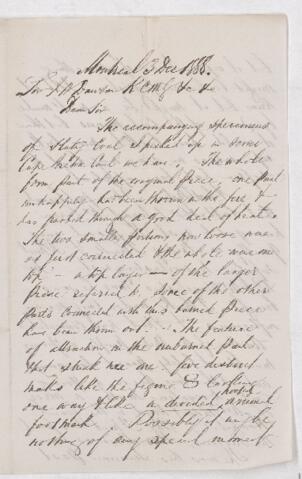 Montreal 3 Dec 1888.
Sir J W Dawson K C M G &c &c
Dear Sir
The accompanying specimens
of Slaty Coal I picked up in some
Cape Breton Coal we have. The whole
form part of the original piece - one part
unhappily has been thrown in the fire &
has passed through a good deal of heat.
The two smaller portions now loose were
at first connected & the whole was on
top - a top layer - of the larger
piece referred to. Some of the other
parts connected with this burned piece
have been thrown out. The feature
of attraction in the unburned part
that struck me are five distinct
marks like the figure 8 looking
one way & like a decided animal
footmark. Possibly it may be
nothing of any special moment